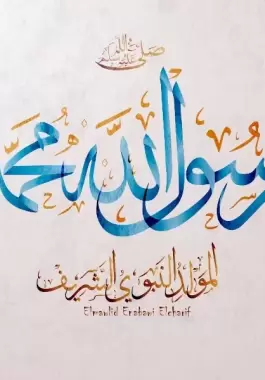 صلى الله عليه وسلم
محمد رسول الله
المولد النبوي الشريف
Elmawlid Enabawi Elcharif